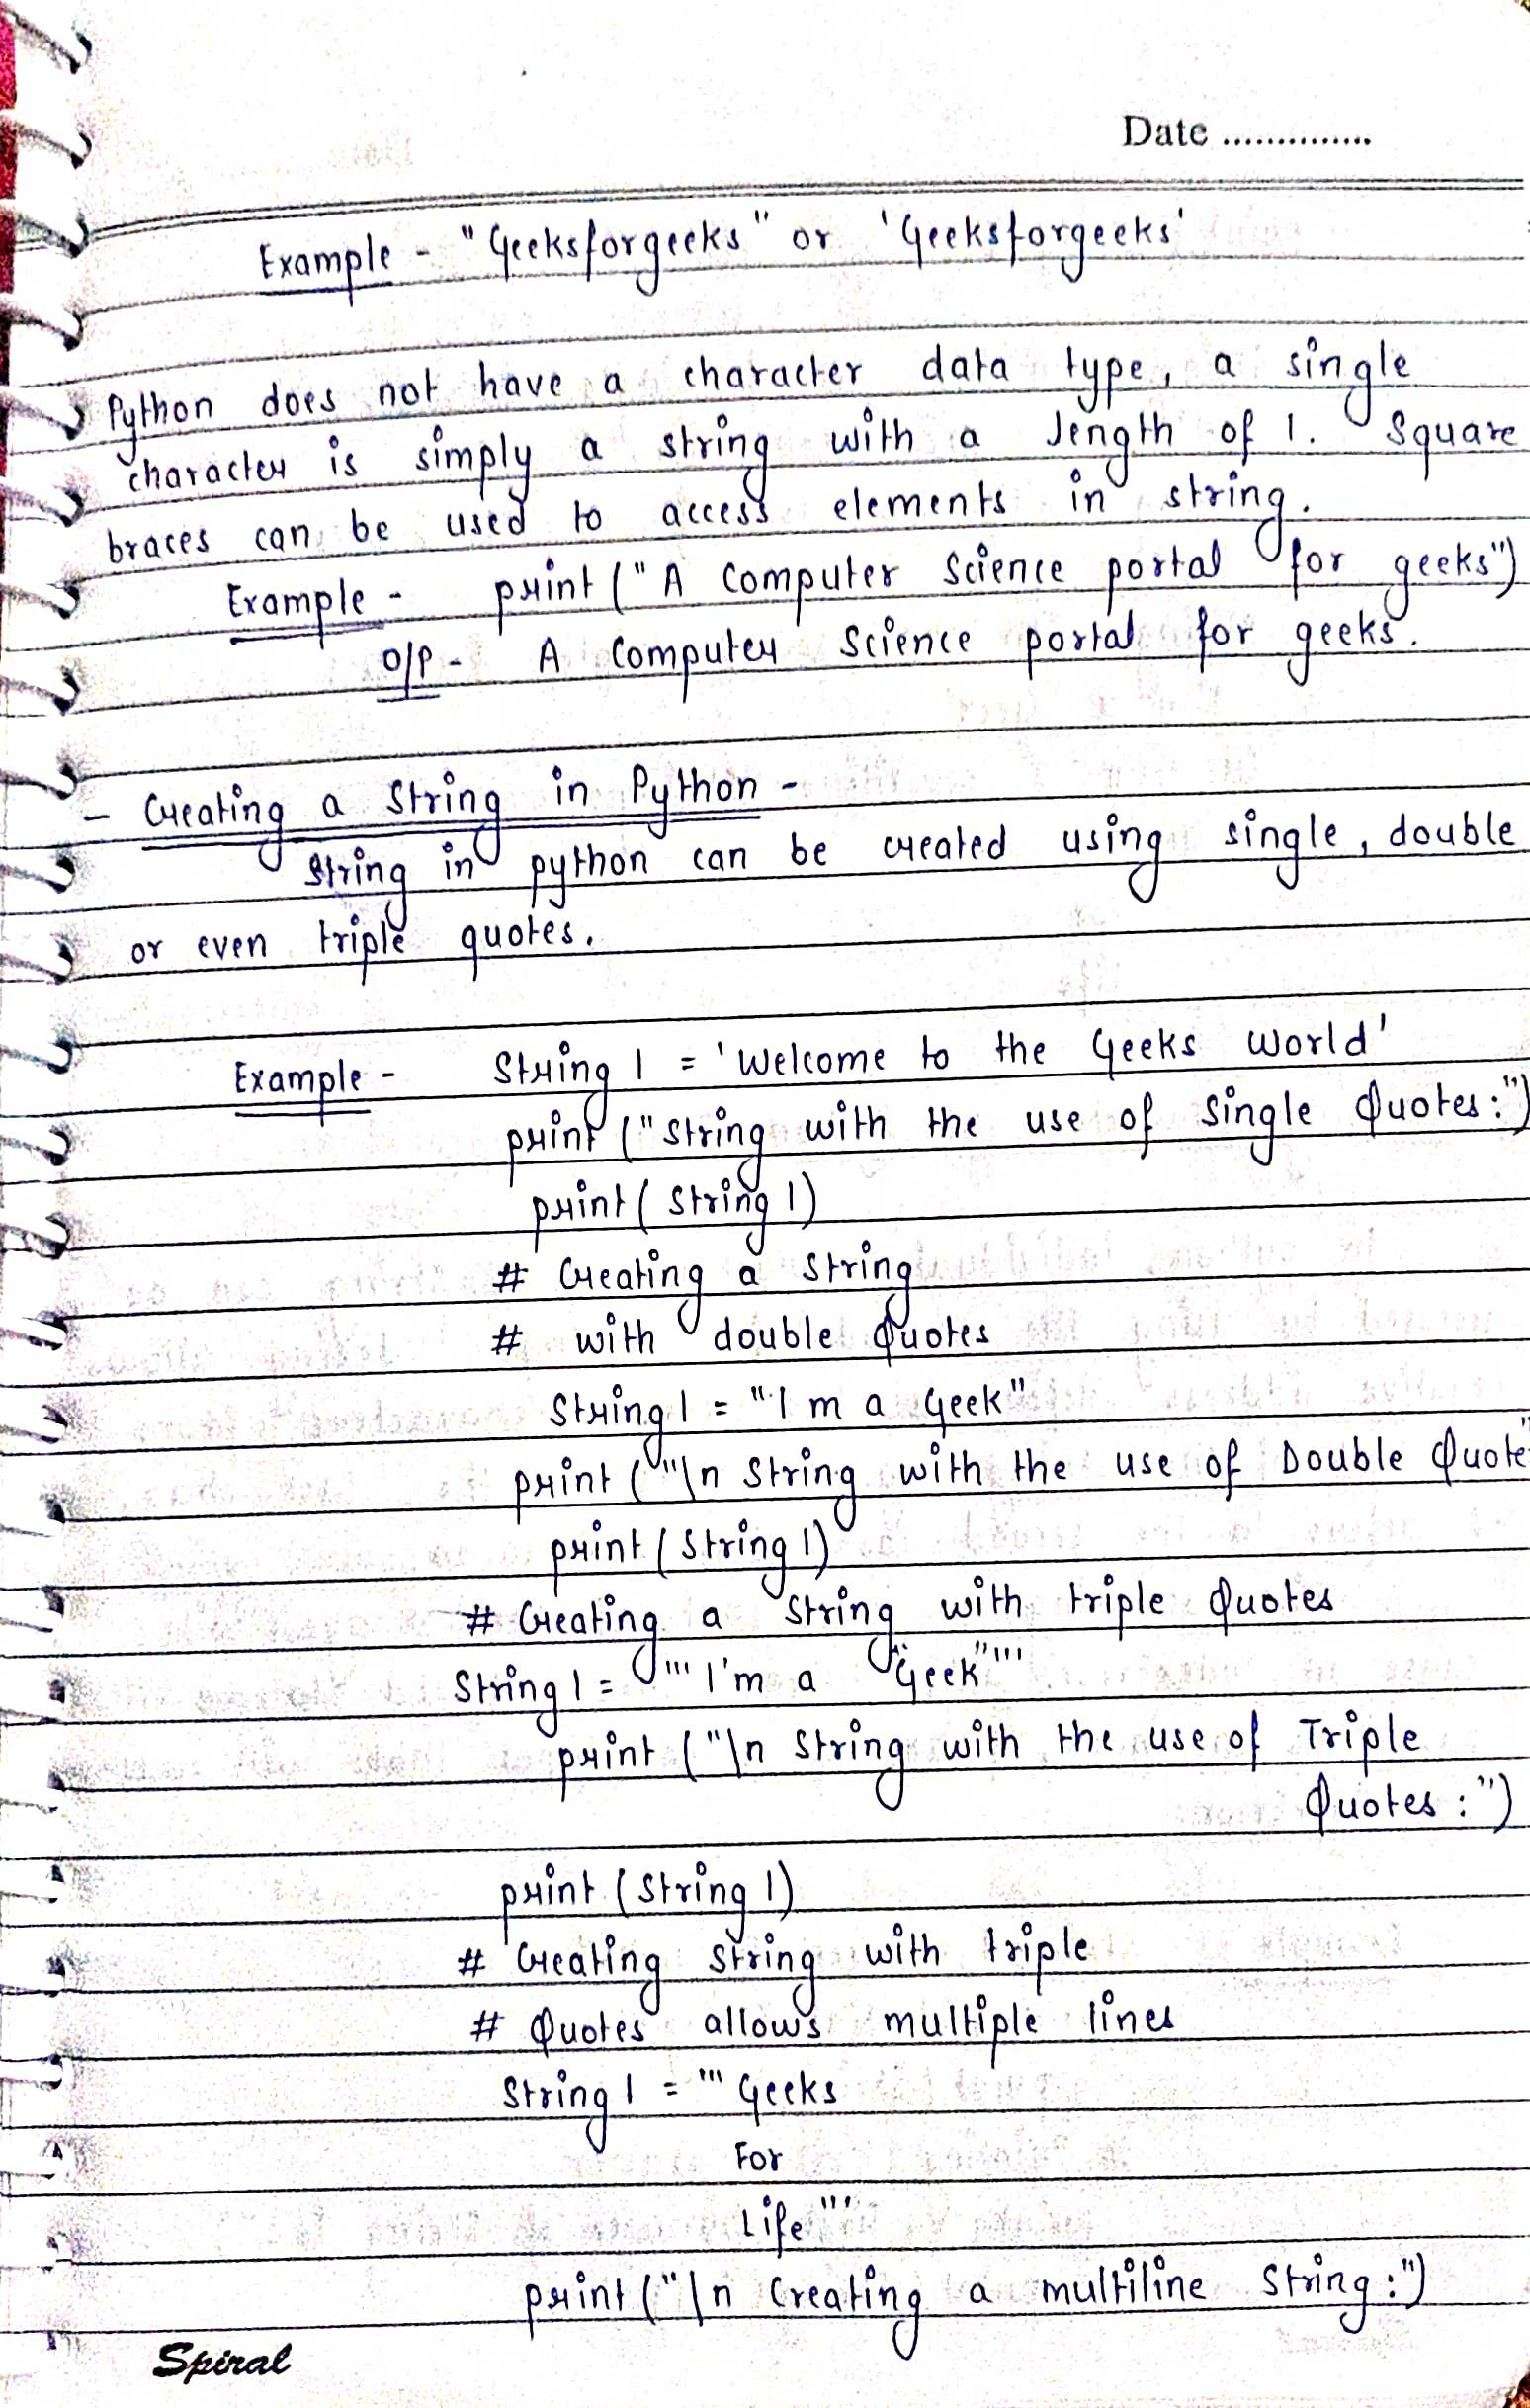 Date ..............
Example - "Geeksforgeeks" or 'Geeksforgeeks'
Python does not have a character data type, a single
character is simply a string with a length of 1. Square
braces can be used to access elements in string.
Example - print ("A Computer Science portal for geeks")
O/P - A Computer Science portal for geeks.
- Creating a String in Python -
String in python can be created using single, double
or even triple quotes.
Example - String 1 = 'Welcome to the Geeks World'
print ("String with the use of Single Quotes:")
print ( String 1)
# Creating a String
# with double Quotes
String 1 = "I m a Geek"
print ("\n String with the use of Double Quote"
print ( String 1)
# Creating a String with triple Quotes
String 1 = ''' I'm a "Geek"'''
print ("\n String with the use of Triple
Quotes :")
print ( String 1)
# Creating String with triple
# Quotes allows multiple lines
String 1 = ''' Geeks
For
Life '''
print ("\n Creating a multiline String :")
Spiral